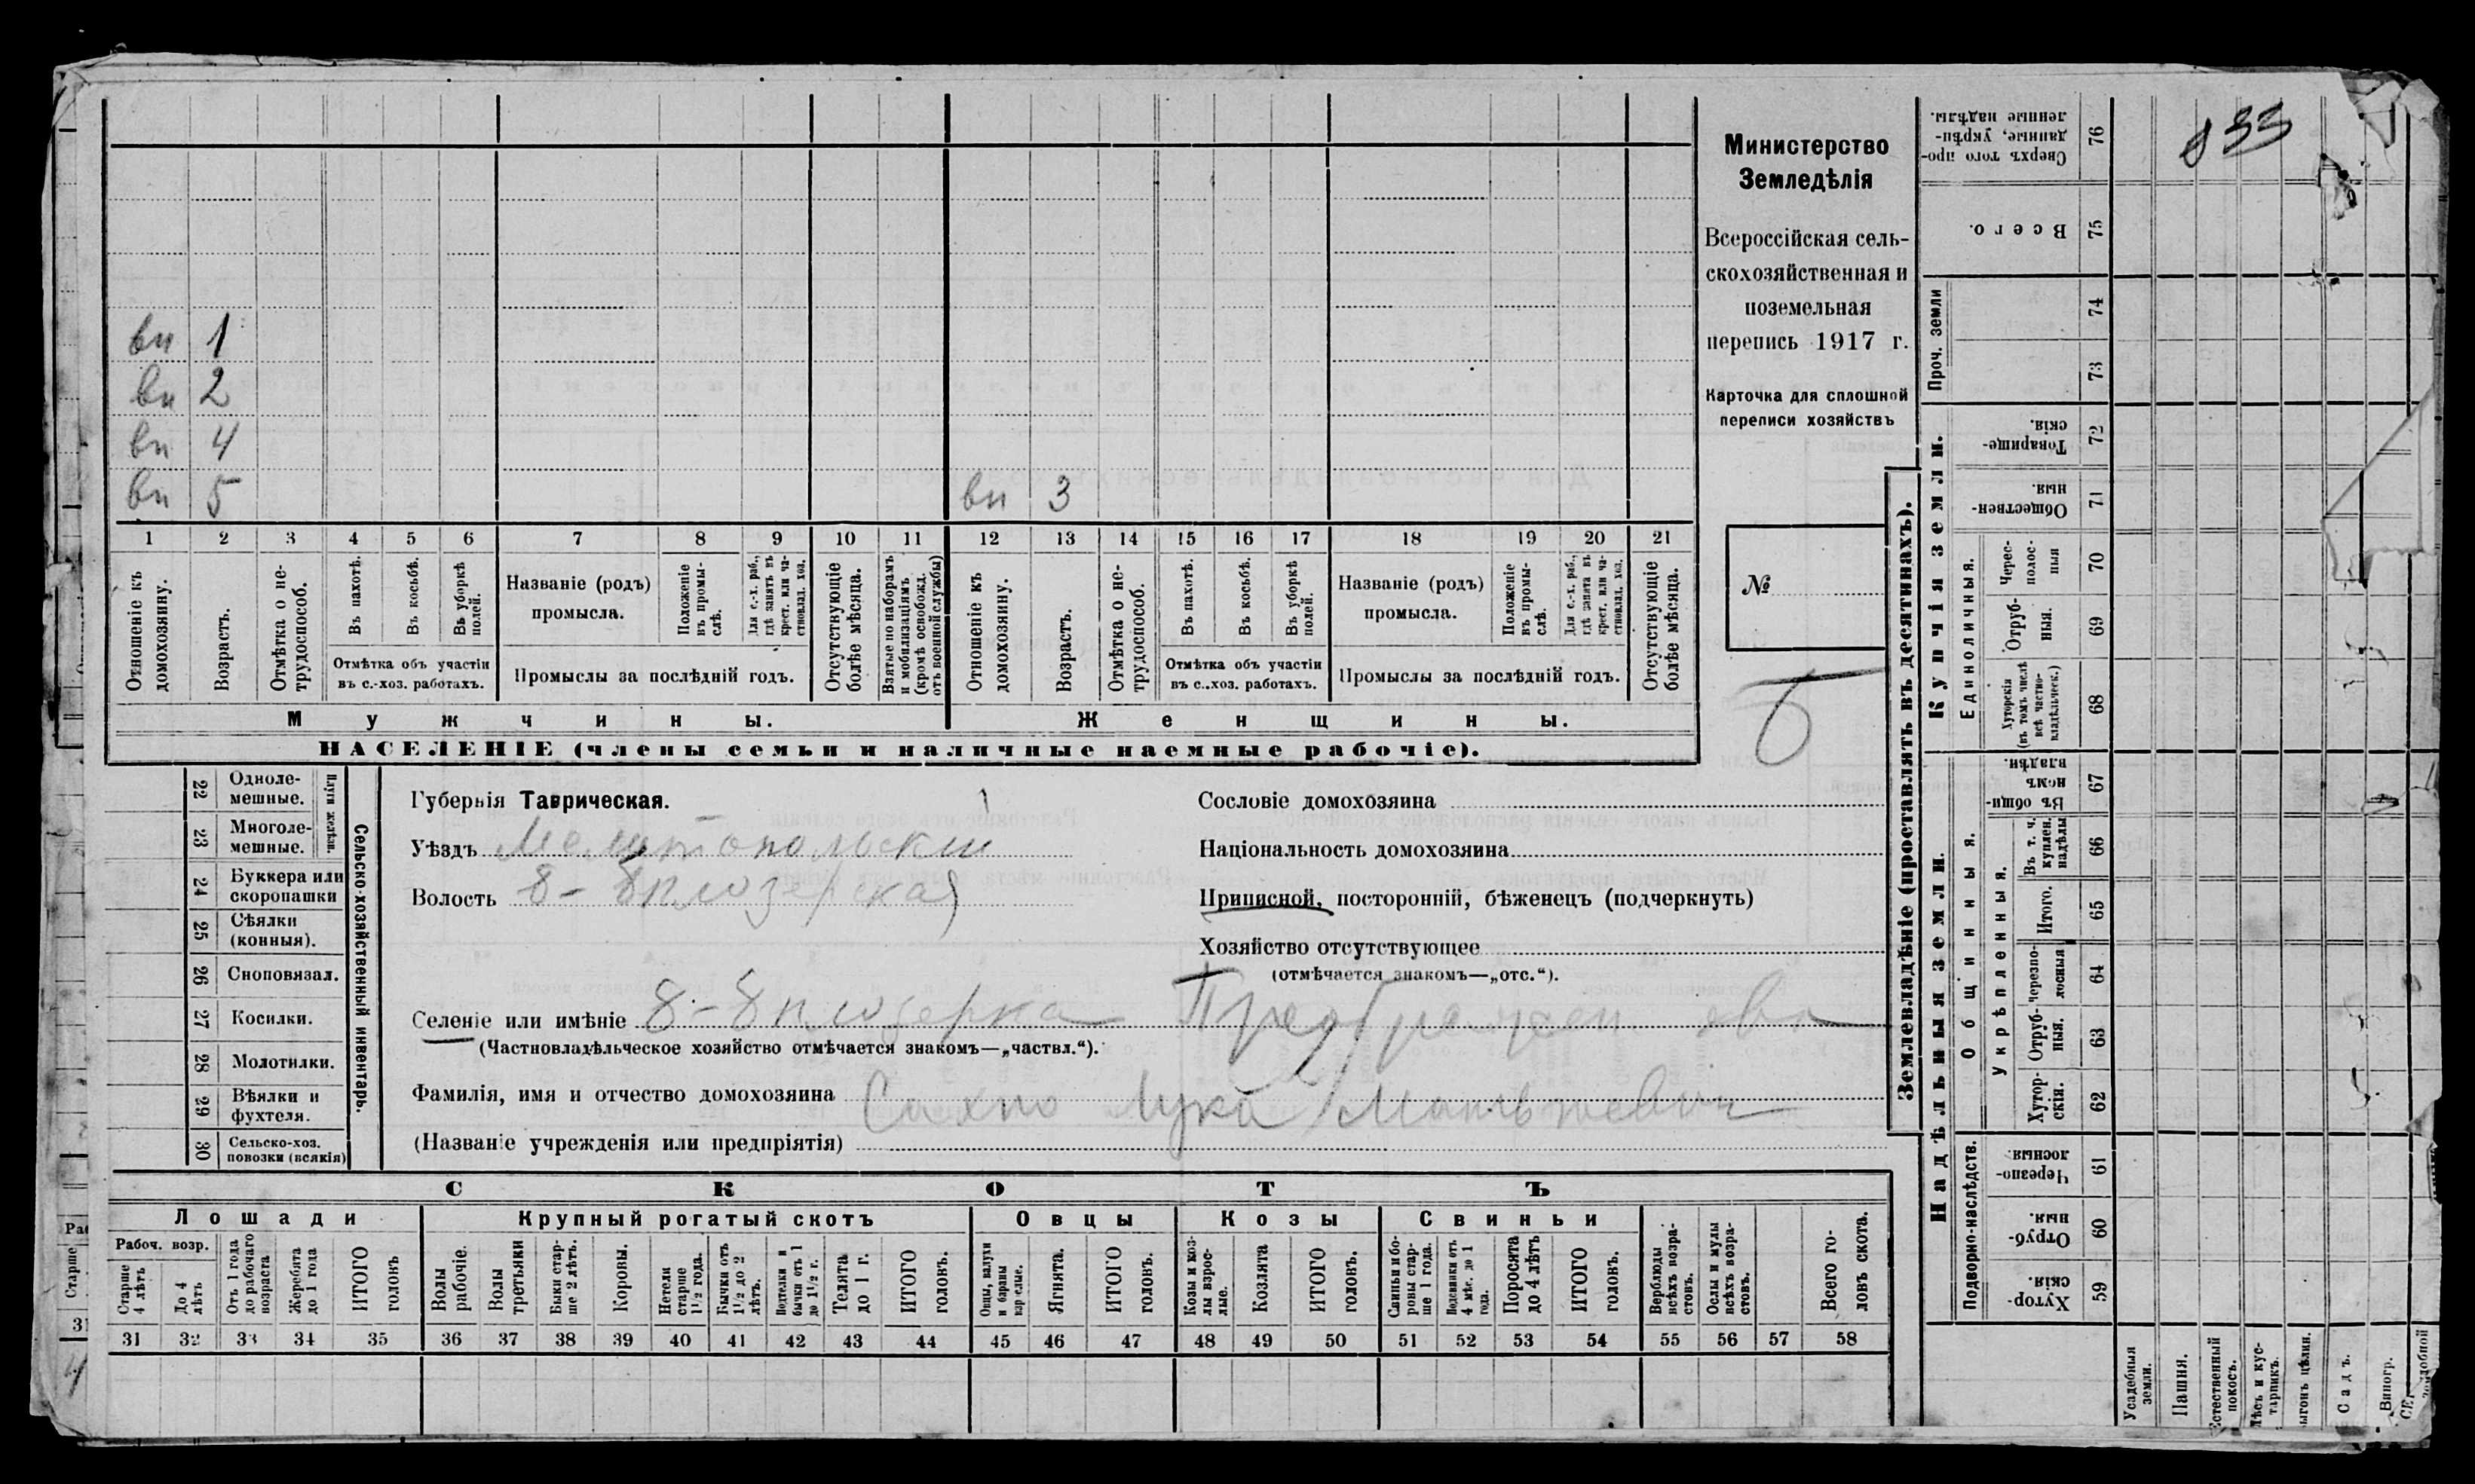 833
Министерство
Земледѣлія
Всероссійская сель-
скохозяйственная и
поземельная
перепись 1917 г.
Карточка для сплошной
переписи хозяйствъ
№
Б
вн 1
вн 2
вн 4
вн 5 вн 3
1 2 3 4 5 6 7 8 9 10 11 12 13 14 15 16 17 18 19 20 21
Отношеніе къ домохозяину.
Возрастъ.
Отмѣтка о не-трудоспособ.
Въ пахотѣ.
Въ косьбѣ.
Въ уборкѣ полей.
Отмѣтка объ участіи
въ с.-хоз. работахъ.
Названіе (родъ)
промысла.
Положеніе въ промы-слѣ.
Для с.-х. раб., гдѣ занятъ въ крест. или ча-стновлад. хоз.
Промыслы за послѣдній годъ.
Отсутствующіе болѣе мѣсяца.
Взятые по наборамъ и мобилизаціямъ (кромѣ освобожд. отъ военной службы)
Отношеніе къ домохозяину.
Возрастъ.
Отмѣтка о не-трудоспособ.
Въ пахотѣ.
Въ косьбѣ.
Въ уборкѣ полей.
Отмѣтка объ участіи
въ с.-хоз. работахъ.
Названіе (родъ)
промысла.
Положеніе въ промы-слѣ.
Для с.-х. раб., гдѣ занята въ крест. или ча-стновлад. хоз.
Промыслы за послѣдній годъ.
Отсутствующіе болѣе мѣсяца.
Мужчины. Женщины.
НАСЕЛЕНІЕ (члены семьи и наличные наемные рабочіе).
Сельско-хозяйственный инвентарь.
Плуги желѣзн.
22 Одноле-мешные.
23 Многоле-мешные.
24 Буккера или скоропашки
25 Сѣялки (конныя).
26 Сноповязал.
27 Косилки.
28 Молотилки.
29 Вѣялки и фухтеля.
30 Сельско-хоз. повозки (всякія)
Губернія Таврическая.
Уѣздъ Мелитопольскій
Волость
Селеніе или имѣніе
(Частновладѣльческое хозяйство отмѣчается знакомъ—„частвл.“).
Фамилія, имя и отчество домохозяина Сахно Лука Матвѣевич
(Названіе учрежденія или предпріятія)
Сословіе домохозяина
Національность домохозяина
Приписной, посторонній, бѣженецъ (подчеркнуть)
Хозяйство отсутствующее
(отмѣчается знакомъ—„отс.“).
СКОТЪ
Лошади Крупный рогатый скотъ Овцы Козы Свиньи
Рабоч. возр.
Старше 4 лѣтъ
До 4 лѣтъ
Отъ 1 года до рабочаго возраста
Жеребята до 1 года
ИТОГО головъ
Волы рабочіе.
Волы третьяки
Быки стар-ше 2 лѣтъ.
Коровы.
Нетели старше 1½ года.
Бычки отъ 1½ до 2 лѣтъ.
Подтелки и бычки отъ 1 до 1½ г.
Телята до 1 г.
ИТОГО головъ.
Овцы, валухи и бараны взрослые.
Ягнята.
ИТОГО головъ.
Козы и коз-лы взрос-лые.
Козлята
ИТОГО головъ.
Свиньи и бо-ровы стар-ше 1 года.
Подсвинки отъ 4 мѣс. до 1 года.
Поросята до 4 лѣтъ
ИТОГО головъ.
Верблюды всѣхъ возра-стовъ.
Ослы и мулы всѣхъ возра-стовъ.
Всего го-ловъ скота.
31 32 33 34 35 36 37 38 39 40 41 42 43 44 45 46 47 48 49 50 51 52 53 54 55 56 57 58
Землевладѣніе (проставлять въ десятинахъ).
Купчія земли.
Сверхъ того про-данные, укрѣп-ленные надѣлы. 76
Всего. 75
Проч. земли 74
73
Товарище-скія. 72
Обществен-ныя. 71
Единоличныя.
Черес-полос-ныя 70
Отруб-ныя. 69
Хуторскія (въ томъ числѣ всѣ частно-владѣльческ.) 68
Надѣльныя земли.
Общинныя.
Въ общи-номъ владѣн. 67
Укрѣпленныя.
Въ т. ч. куплен. надѣлы 66
Итого. 65
Черезпо-лосныя 64
Отруб-ныя. 63
Хутор-скія. 62
Подворно-наслѣдств.
Черезпо-лосныя. 61
Отруб-ныя. 60
Хутор-скія. 59
Усадебныя земли.
Пашня.
Естественный покосъ.
Лѣсъ и кус-тарникъ.
Садъ.
Виногр.
Старше
31
4